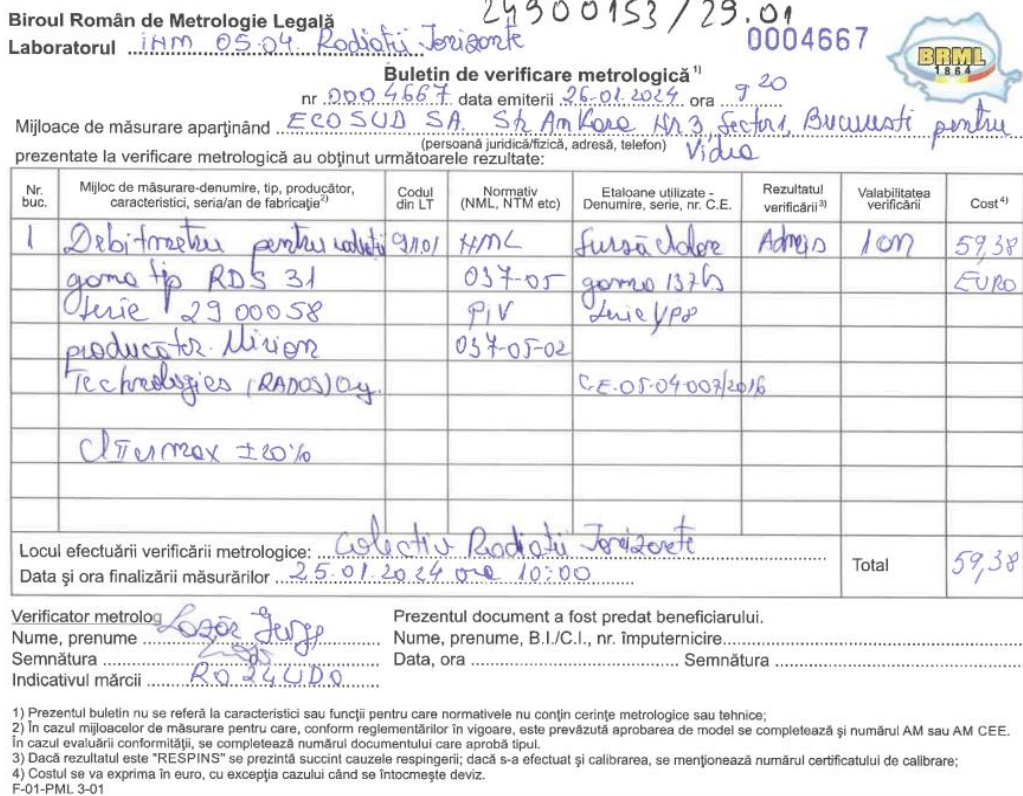 24900153/29.01
Biroul Român de Metrologie Legală
Laboratorul iHM 05.04. Radiații Ionizante
0004667
BRML
1864
Buletin de verificare metrologică 1)
nr 0004667 data emiterii 26.01.2024 ora 9 20
Mijloace de măsurare aparţinând ECO SUD SA. Str Ankara Nr 3, Sector 1, București pentru
(persoană juridică/fizică, adresă, telefon) Vidra
prezentate la verificare metrologică au obţinut următoarele rezultate:
Nr. buc. Mijloc de măsurare-denumire, tip, producător, caracteristici, seria/an de fabricaţie2) Codul din LT Normativ (NML, NTM etc) Etaloane utilizate - Denumire, serie, nr. C.E. Rezultatul verificării3) Valabilitatea verificării Cost4)
1 Debitmetru pentru radiații NML Sursă Admis 1 an 59,38
gama tip RDS 31 037-05 gama 137Cs EURO
serie 2900058 PIV serie
producător. Mirion 037-05-02
Technologies (RADOS) Oy. C.E-05-04-007/2016
max ±20%
Locul efectuării verificării metrologice: Colectiv Radiații Ionizante
Data şi ora finalizării măsurărilor 25.01.2024 ora 10:00
Total 59,38
Verificator metrolog
Nume, prenume Lazăr George
Semnătura
Indicativul mărcii RO 24LIDO
Prezentul document a fost predat beneficiarului.
Nume, prenume, B.I./C.I., nr. împuternicire
Data, ora Semnătura
1) Prezentul buletin nu se referă la caracteristici sau funcţii pentru care normativele nu conţin cerinţe metrologice sau tehnice;
2) În cazul mijloacelor de măsurare pentru care, conform reglementărilor în vigoare, este prevăzută aprobarea de model se completează şi numărul AM sau AM CEE.
În cazul evaluării conformităţii, se completează numărul documentului care aprobă tipul.
3) Dacă rezultatul este "RESPINS" se prezintă succint cauzele respingerii; dacă s-a efectuat şi calibrarea, se menţionează numărul certificatului de calibrare;
4) Costul se va exprima în euro, cu excepţia cazului când se întocmeşte deviz.
F-01-PML 3-01